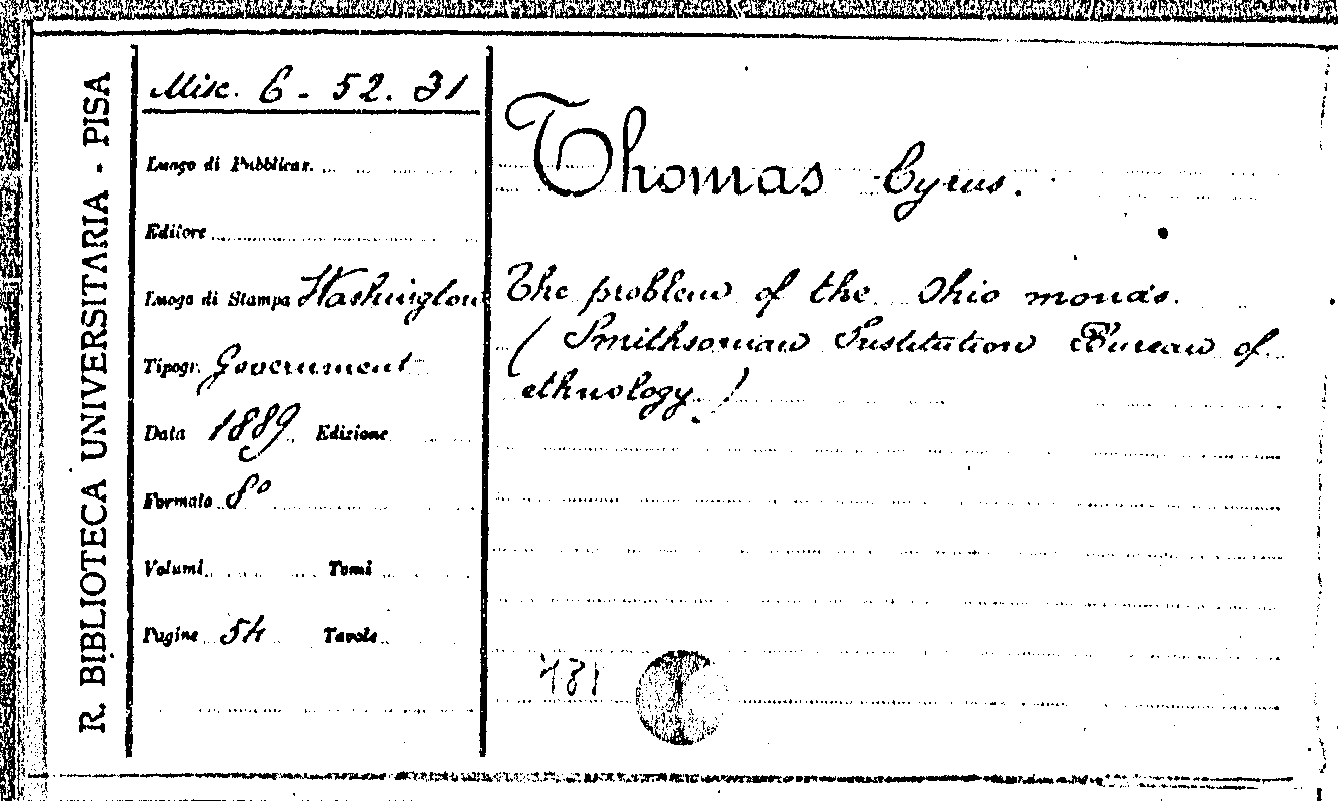 R. BIBLIOTECA UNIVERSITARIA - PISA
Misc. 6 - 52. 31
Luogo di Pubblicaz.
Editore
Luogo di Stampa Washington
Tipogr. Government
Data 1889 Edizione
Formato 8º
Volumi Tomi
Pagine 54 Tavole
Thomas Cyrus.
The problem of the Ohio monds.
( Smithsonian Institution Bureau of
ethnology. )